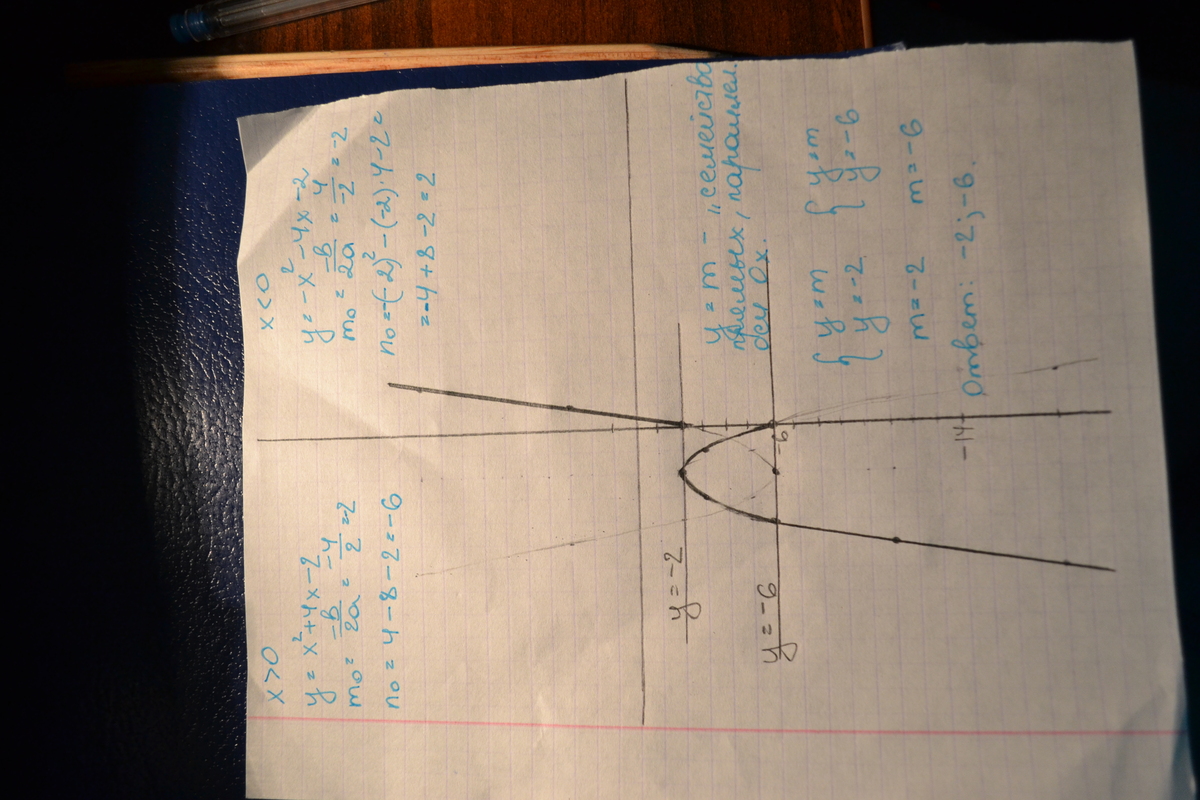 x>0
y = x²+4x-2
m₀ = -в/2a = -4/2 = -2
n₀ = 4-8-2=-6
x<0
y = -x²-4x-2
m₀ = -в/2a = 4/-2 = -2
n₀=-(-2)²-(-2)·4-2=
=-4+8-2=2
y=-2
y=-6
-6
-14
y=m - "семейство
прямых, параллел.
оси Ox.
{ y=m
y=-2
{ y=m
y=-6
m=-2
m=-6
Ответ: -2; -6.